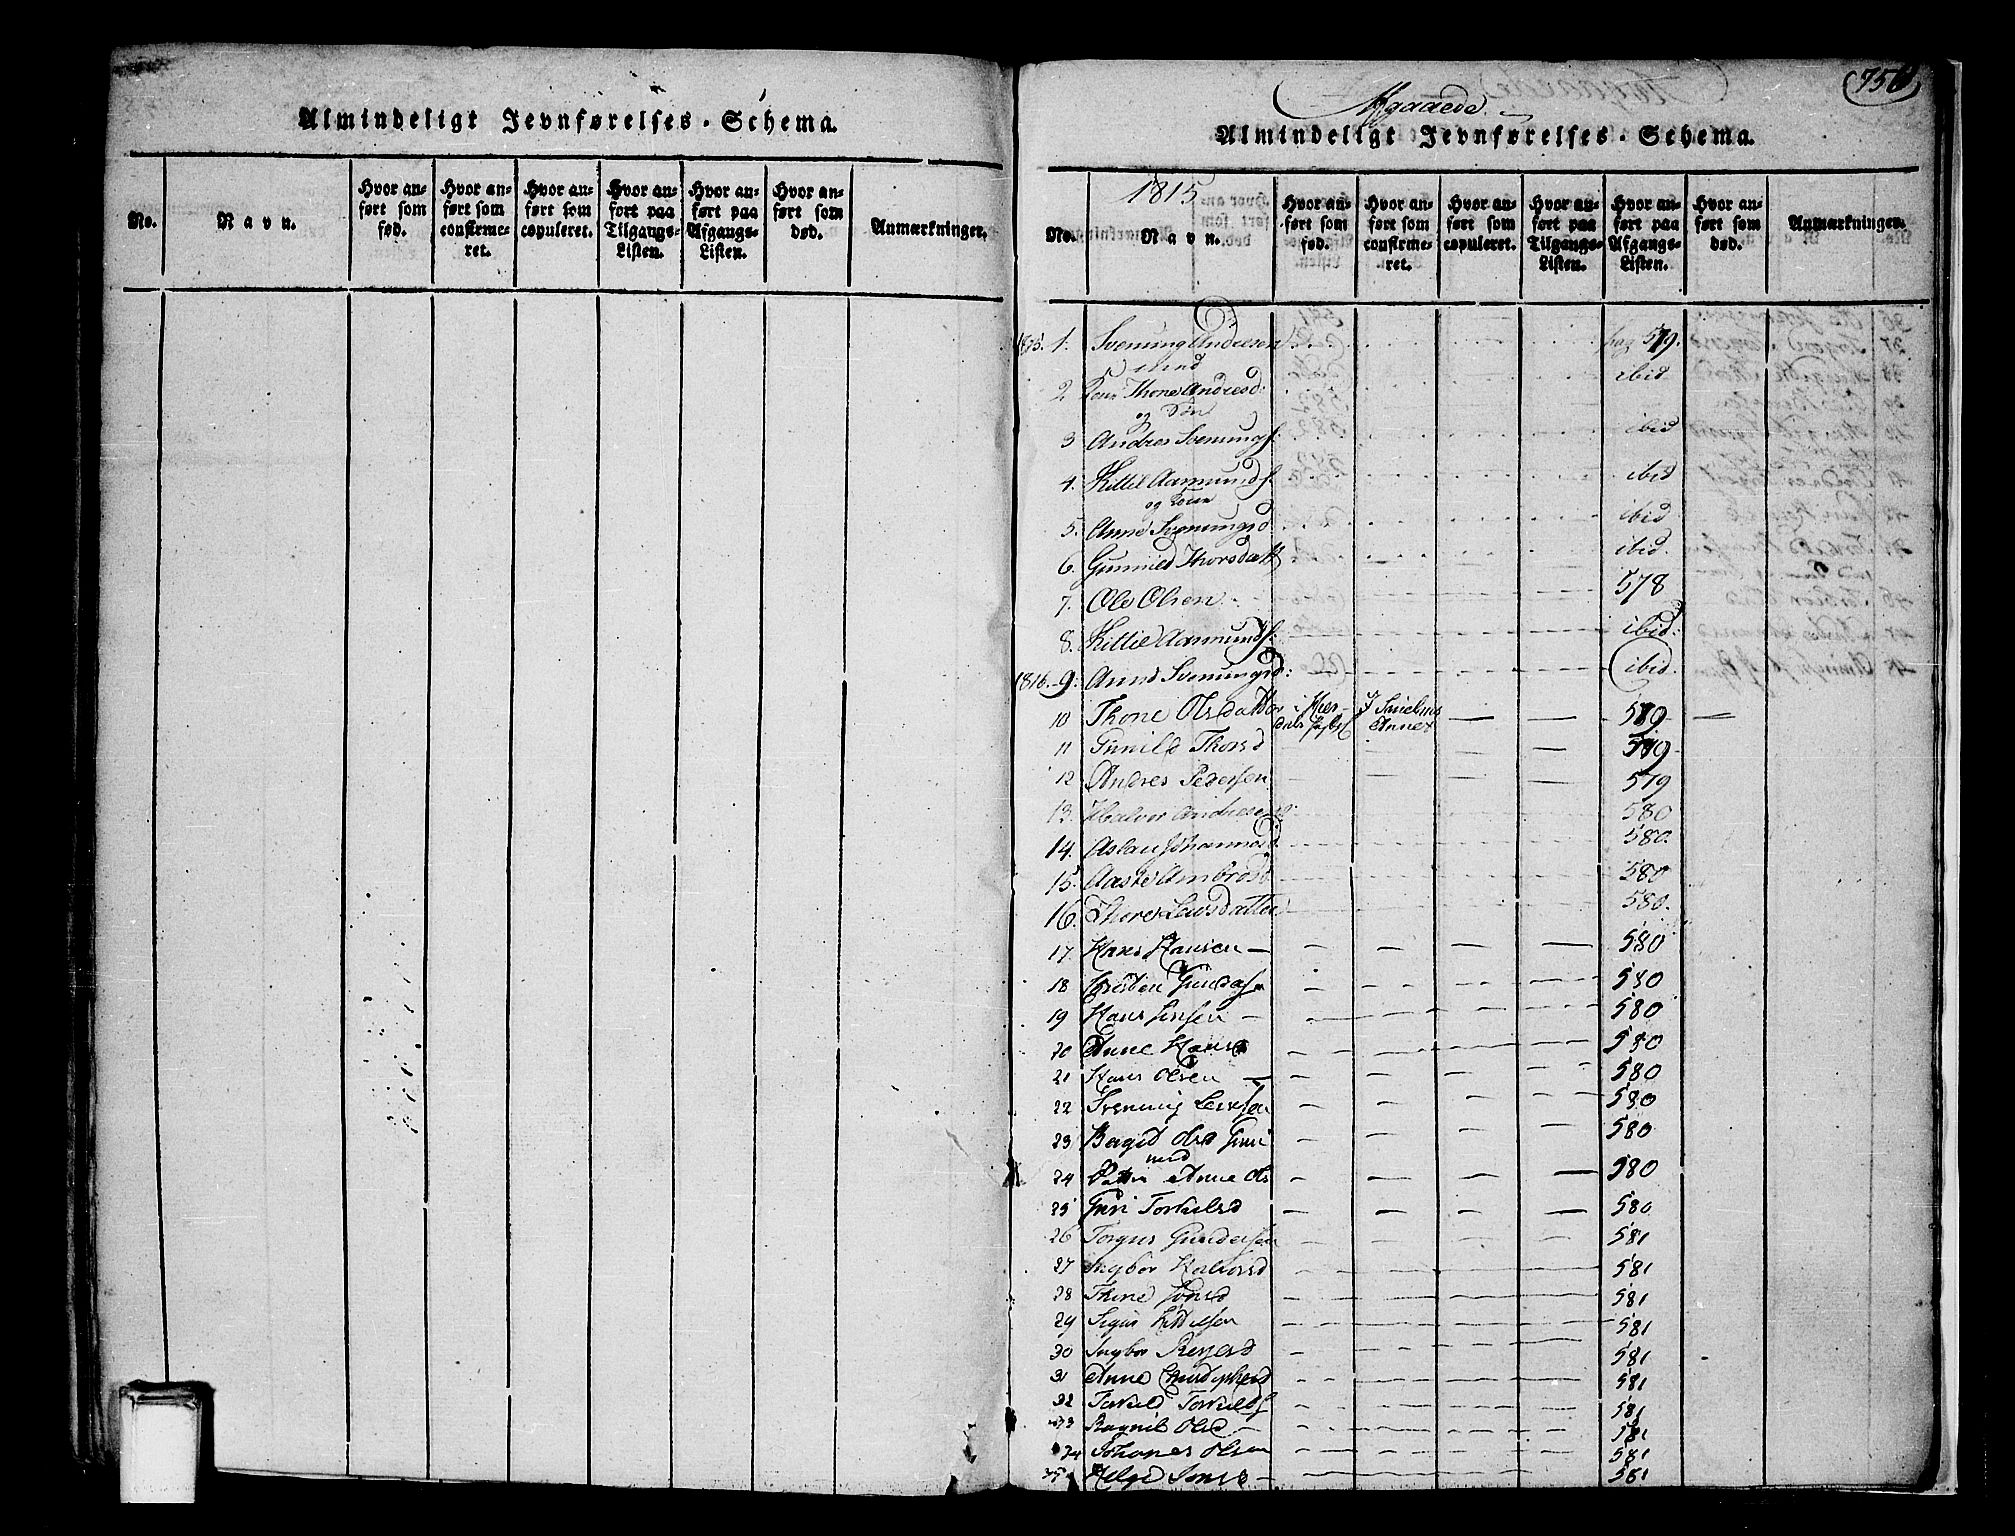 Almindeligt Jevnførelses-Schema.
No.
Navn.
Hvor anført som fød.
Hvor anført som confirmeret.
Hvor anført som copuleret.
Hvor anført paa Tilgangs-Listen.
Hvor anført paa Afgangs-Listen.
Hvor anført som død.
Anmærkninger.
Afgaaede
Almindeligt Jevnførelses-Schema.
No.
1815
Navn.
Hvor anført som fød.
Hvor anført som confirmeret.
Hvor anført som copuleret.
Hvor anført paa Tilgangs-Listen.
Hvor anført paa Afgangs-Listen.
Hvor anført som død.
Anmærkninger.
1815. 1. Svenung Andresen pag 579.
med
2 Kone Thone Andresd: ibid
og Søn
3 Andres Svenungs. ibid
4. Kittil Aamunds. ibid
og Kone
5. Anne Svenungsd ibid
6. Gunnild Thorsdatt ibid.
7. Ole Olsen 578
8. Kittil Aamunds. ibid:
1816. 9. Anne Svenungsd: ibid.
10 Thone Olsdatter 579
11 Gunild Thorsd 579
12 Andres Pedersen 579
13. Halvor Andresen 580
14. Aslau Johannesd 580.
15. Aaste Ambrosd 580
16. Thore Larsdatter 580.
17. Hans Hansen 580
18 580
19 Hans Jensen 580
20 Anne Hansd 580
21 Hans Olsen 580
22 Svenung Leifsen 580
23 Bergit Olsd 580
med
24 Anne Ols 580
25 Guri Torkelsd 580
26 Torgus Gundersen 581
27 Ingbor Halvorsd 581
28 Thine Jonsd 581
29 Sigur Kittilsen 581
30 Ingbor Reyersd 581
31 Anne Christophersd 581
32 Torkild Torkilds 581
33 Ragnil Olsd 581
34 Johanes Olsen 581
35 Helge Jonsd 581